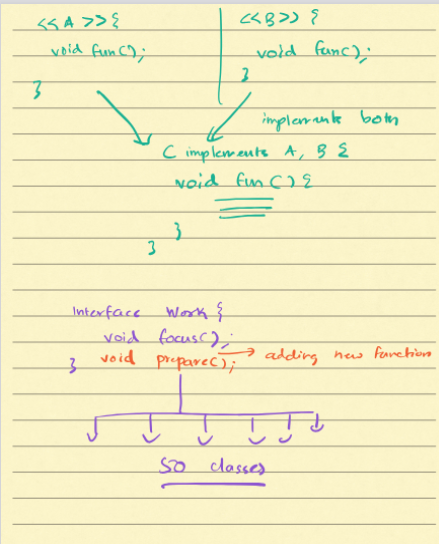 <<A>>{
void fun();
}
<<B>> {
void fun();
}
implements both
C implements A, B {
void fun() {
}
}
Interface Work {
void focus();
} void prepare(); → adding new function
50 classes